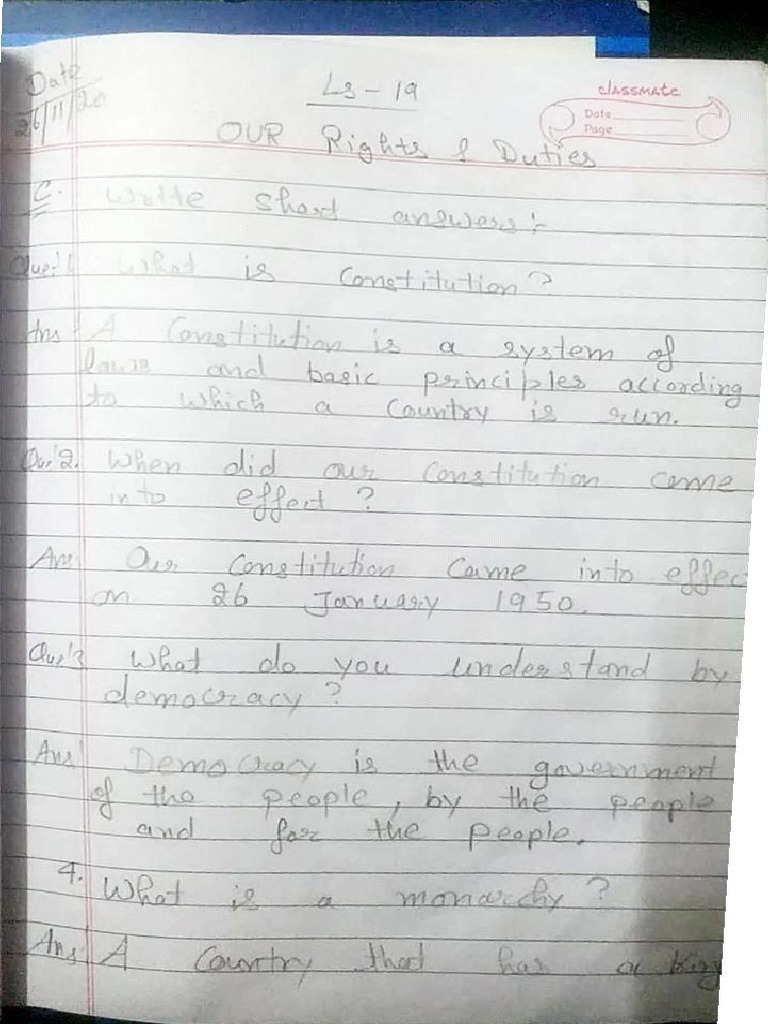 Date
26/11/20
Ls - 19
classmate
Date
Page
OUR Rights & Duties
C. Write short answers:-
Que'1 What is Constitution?
Ans A Constitution is a system of
laws and basic principles according
to which a country is run.
Qu'2. When did our Constitution came
into effect?
Ans Our Constitution came into effec
on 26 January 1950.
Que'3 What do you understand by
democracy?
Ans' Democracy is the government
of the people, by the people
and for the people.
4. What is a monarchy?
Ans A Country that has a King